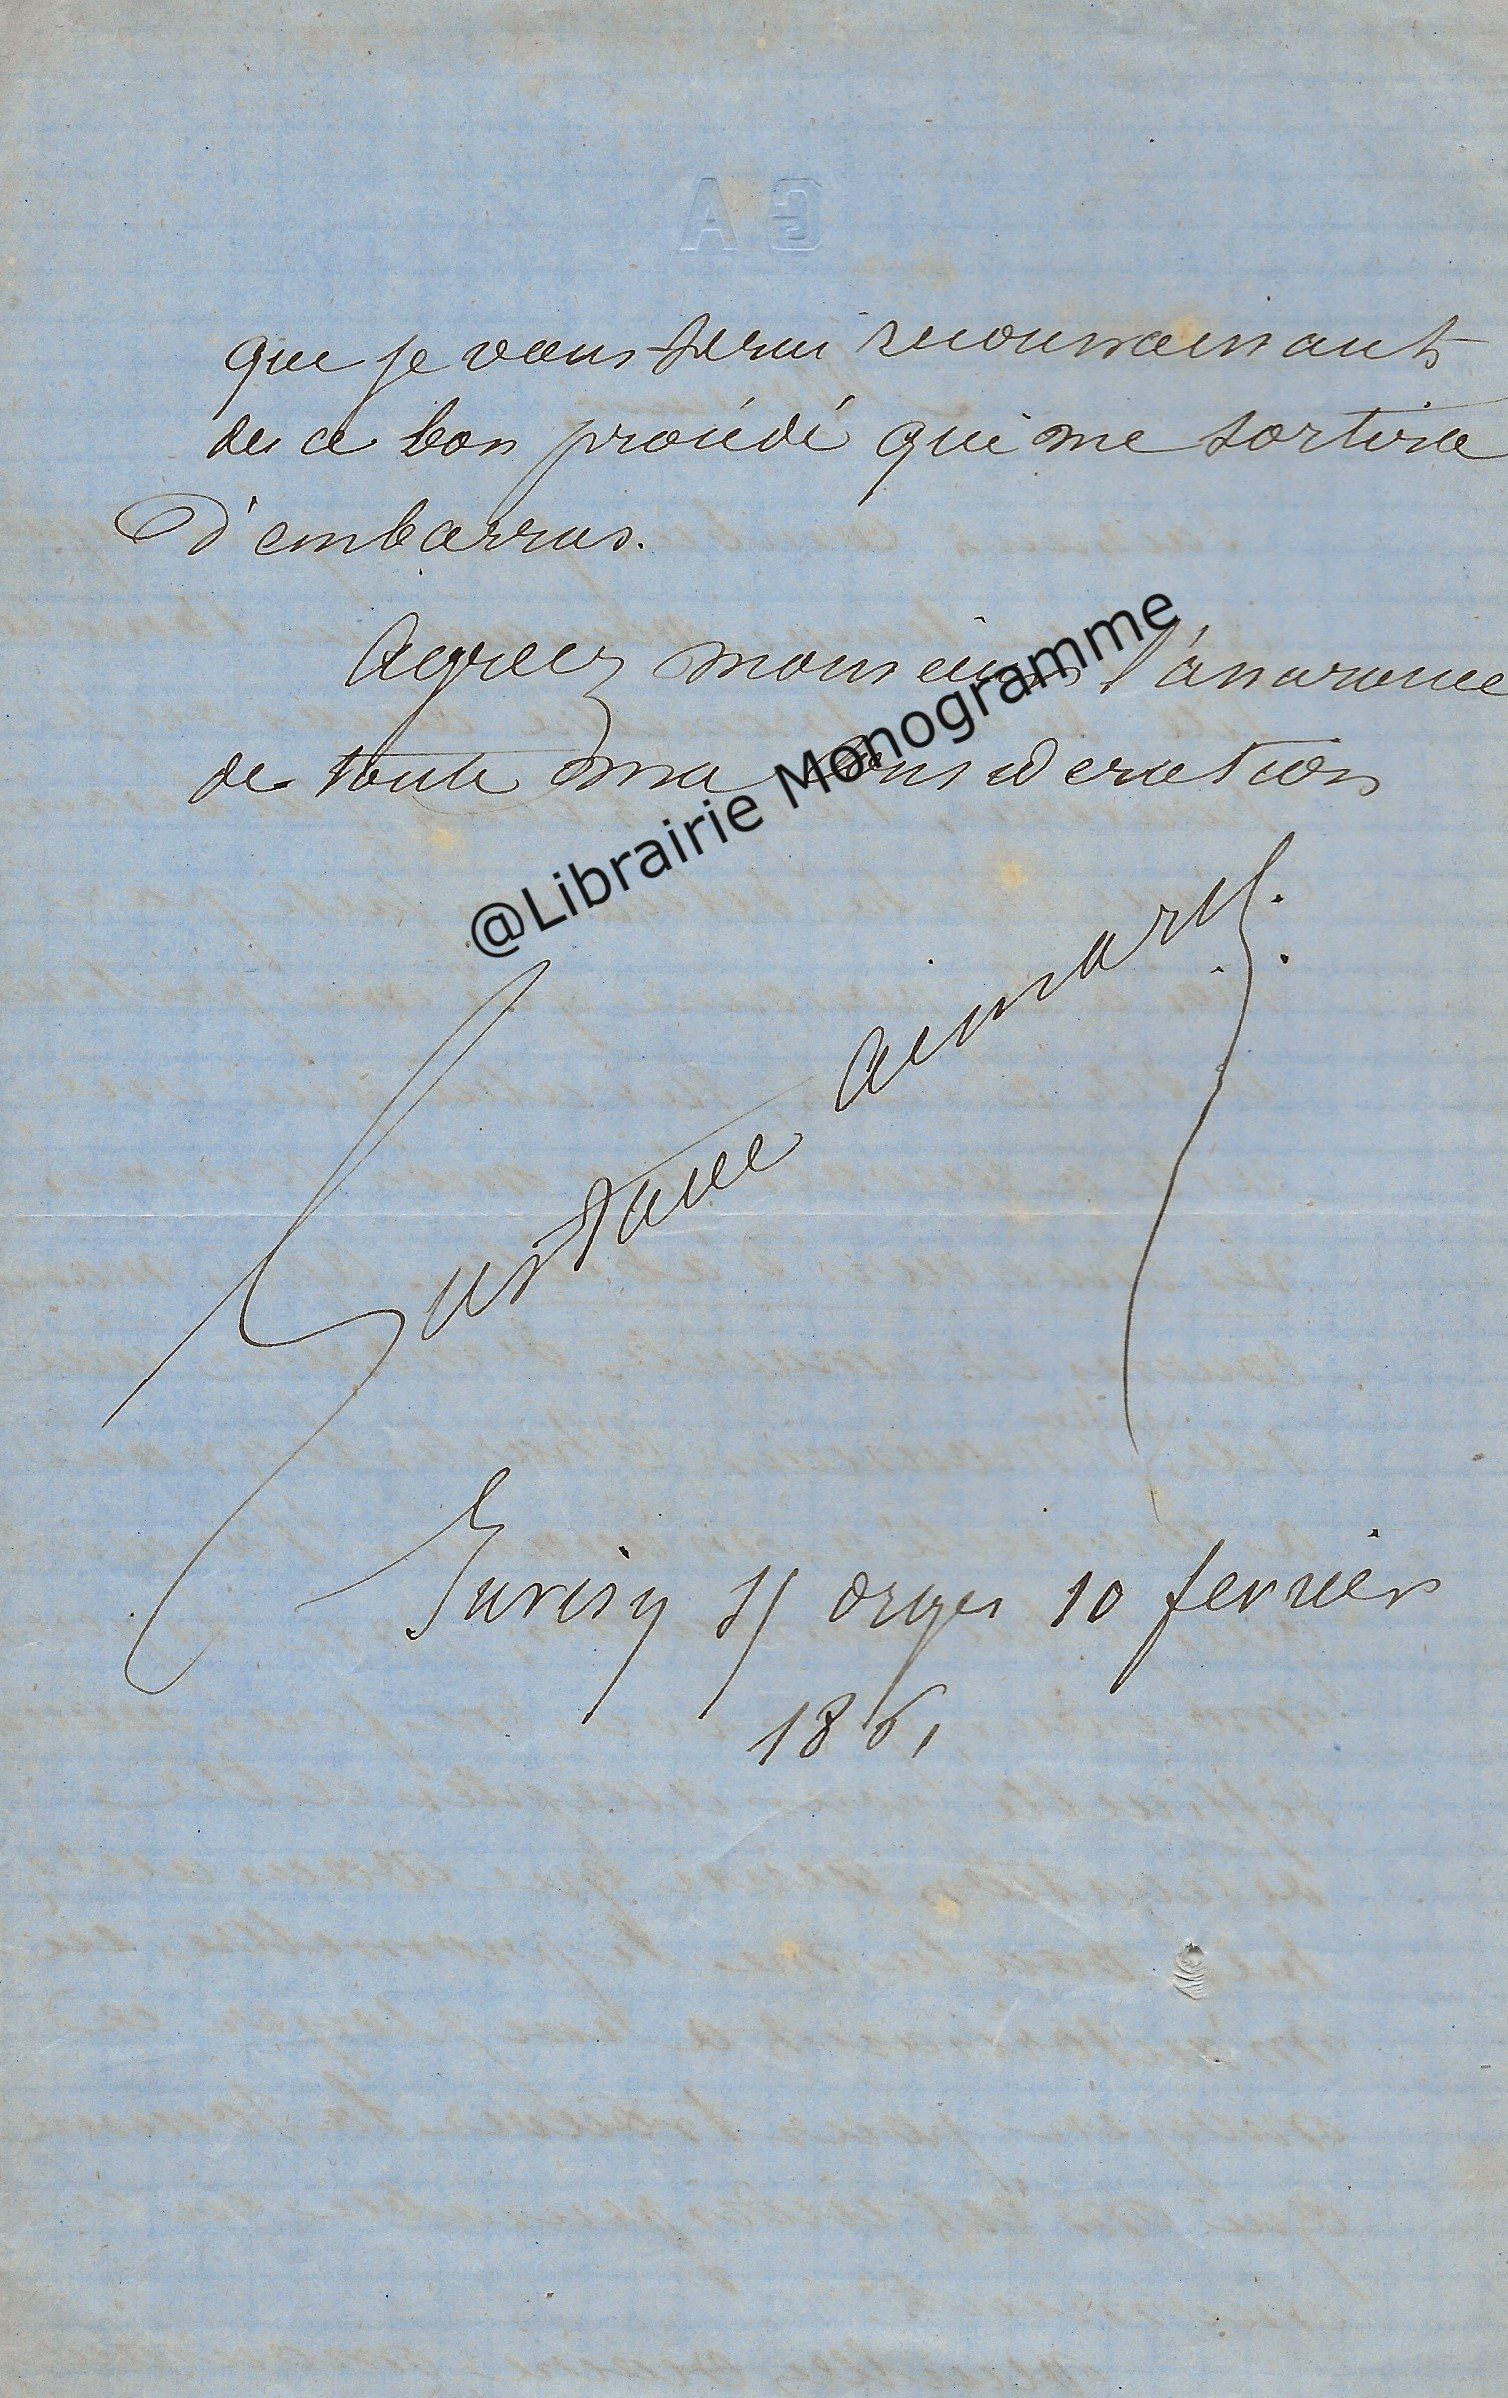 GA
que je vous serai reconnaissant
de ce bon procédé qui me sortira
d'embarras.
Agreez monsieur l'assurance
de toute ma consideration
@Librairie Monogramme
Gustave Aimard.
Juvisy s/ orges 10 fevrier
1861